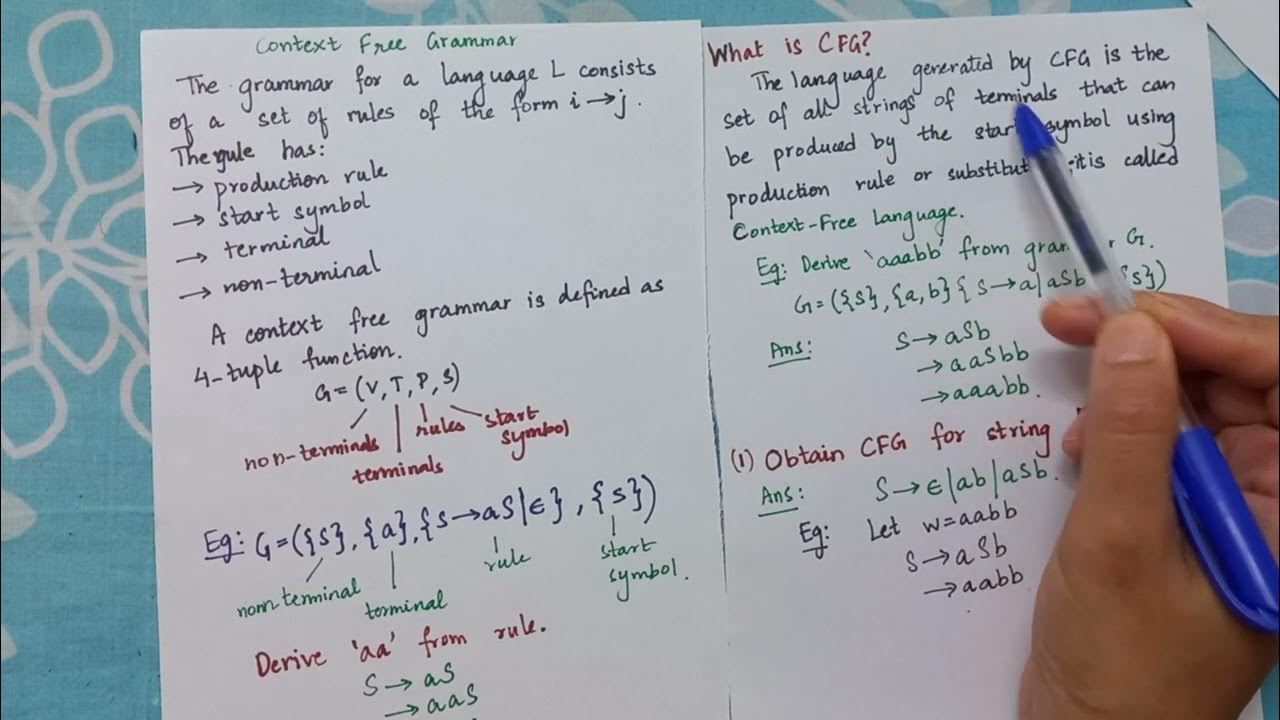 Context Free Grammar
The grammar for a language L consists
of a set of rules of the form i → j.
The rule has:
→ production rule
→ start symbol
→ terminal
→ non-terminal
A context free grammar is defined as
4-tuple function.
G = (V, T, P, S)
non-terminals
terminals
rules
start
symbol
Eg: G = ({S}, {a}, {S → aS | ϵ}, {S})
non-terminal
terminal
rule
start
symbol.
Derive 'aa' from rule.
S → aS
→ aaS
What is CFG?
The language generated by CFG is the
set of all strings of terminals that can
be produced by the start symbol using
production rule or it is called
Context-Free Language.
Eg: Derive 'aaabb' from G.
G = ({S}, {a, b} { S → a | aSb S})
Ans:
S → aSb
→ aaSbb
→ aaabb.
(1) Obtain CFG for string
Ans:
S → ϵ | ab | aSb.
Eg:
Let w = aabb
S → aSb
→ aabb